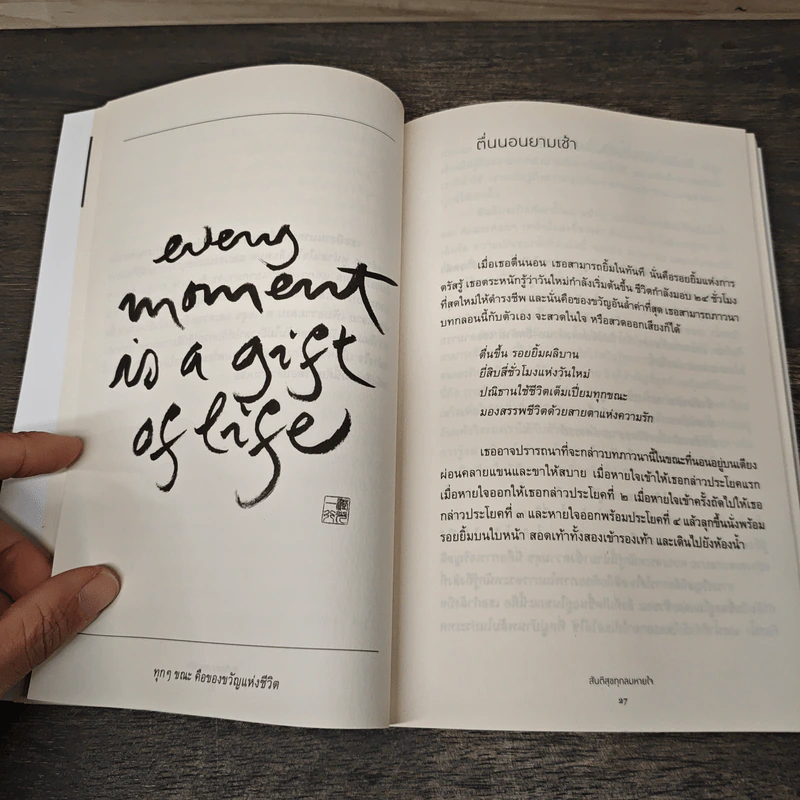 every
moment
is a gift
of life
ทุกๆ ขณะ คือของขวัญแห่งชีวิต
ตื่นนอนยามเช้า
เมื่อเธอตื่นนอน เธอสามารถยิ้มในทันที นั่นคือรอยยิ้มแห่งการ
ตรัสรู้ เธอตระหนักรู้ว่าวันใหม่กำลังเริ่มต้นขึ้น ชีวิตกำลังมอบ ๒๔ ชั่วโมง
ที่สดใหม่ให้ดำรงชีพ และนั่นคือของขวัญอันล้ำค่าที่สุด เธอสามารถภาวนา
บทกลอนนี้กับตัวเอง จะสวดในใจ หรือสวดออกเสียงก็ได้
ตื่นขึ้น รอยยิ้มผลิบาน
ยี่สิบสี่ชั่วโมงแห่งวันใหม่
ปณิธานใช้ชีวิตเต็มเปี่ยมทุกขณะ
มองสรรพชีวิตด้วยสายตาแห่งความรัก
เธออาจปรารถนาที่จะกล่าวบทภาวนานี้ในขณะที่นอนอยู่บนเตียง
ผ่อนคลายแขนและขาให้สบาย เมื่อหายใจเข้าให้เธอกล่าวประโยคแรก
เมื่อหายใจออกให้เธอกล่าวประโยคที่ ๒ เมื่อหายใจเข้าครั้งถัดไปให้เธอ
กล่าวประโยคที่ ๓ และหายใจออกพร้อมประโยคที่ ๔ แล้วลุกขึ้นนั่งพร้อม
รอยยิ้มบนใบหน้า สอดเท้าทั้งสองเข้ารองเท้า และเดินไปยังห้องน้ำ
สันติสุขทุกลมหายใจ
27